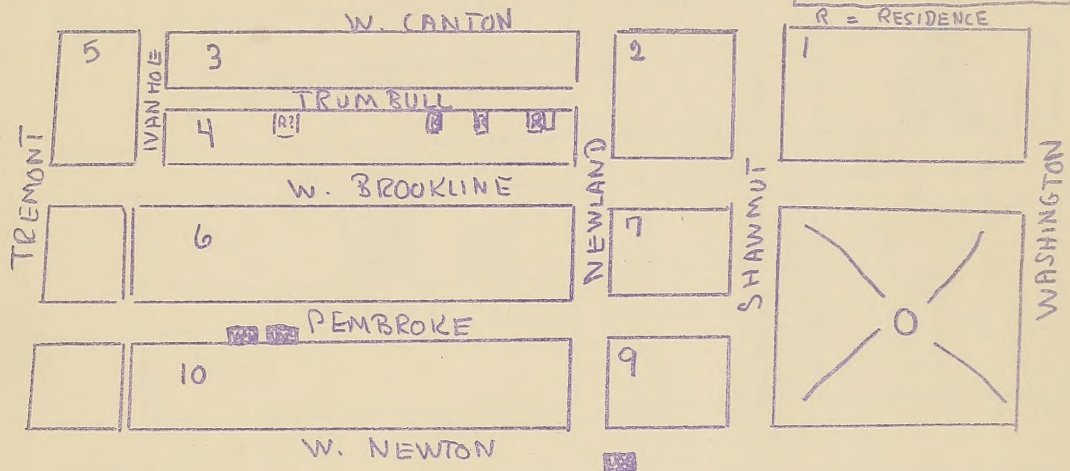 R = RESIDENCE
W. CANTON
5
IVANHOE
3
2
1
TRUMBULL
4
R?
R
R
R
TREMONT
W. BROOKLINE
NEWLAND
SHAWMUT
WASHINGTON
6
7
PEMBROKE
10
9
W. NEWTON